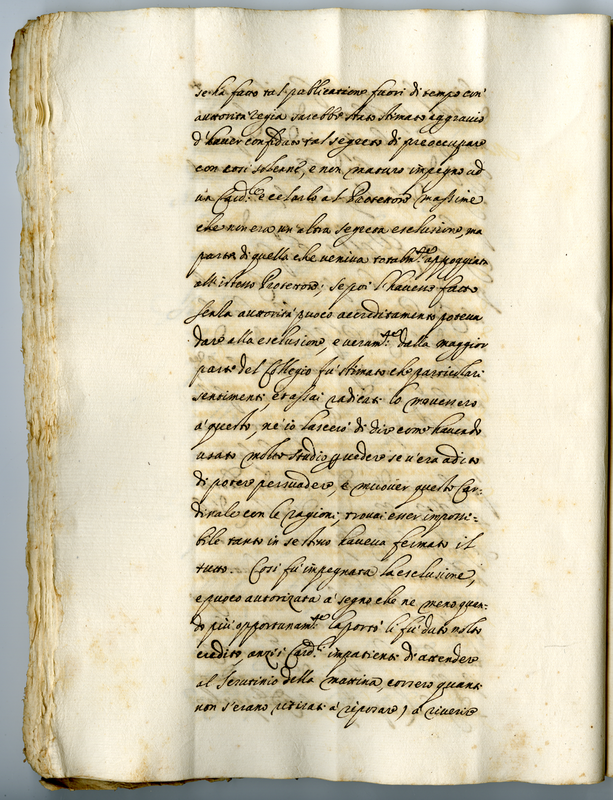 se hà fatto tal publicatione fuori di tempo con'
autorità regia sarebbe stato stimato aggravio
d'haver confidato tal segreto di preoccupare
con così solenne, e non maturo impegno ad
un Card.le e celarlo al Protettore massime
che non era un'altra segreta esclusione, ma
parte di quella che veniva totalm.te appoggiata
all'istesso Protettore; se poi l'havesse fatto
senza autorità puoco accreditamento poteva
dare alla esclusione, e veram.te dalla maggior
parte del Collegio fu stimato che particolari
sentimenti, et assai radicati lo movessero
à questo, ne io lascerò di dire come havendo
usato molto studio p vedere se v'era adito
di poter persuadere, e muover questo Car-
dinale con le ragioni, trovai esser impossi-
bile tanto in se stesso haveva fermato il
tutto. Così fù impegnata la esclusione,
e puoco autorizata à segno che ne meno quan-
do più opportunam.te la portò li fù dato molto
credito, anzi i Card.li impatienti di attender
al scrutinio della mattina, corsero quanti
non s'erano ritirati à riposare) à riverire